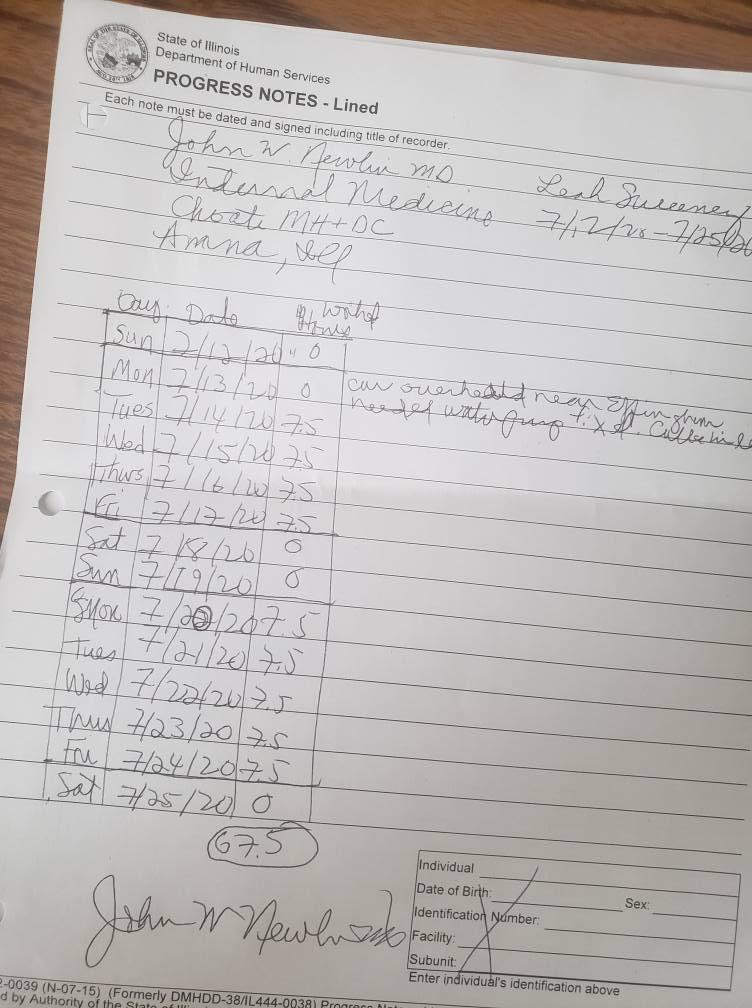 State of Illinois
Department of Human Services
PROGRESS NOTES - Lined
Each note must be dated and signed including title of recorder.
John W. Newlin MD
Leah Sweeney
Internal Medicine
7/12/20 - 7/25/20
Choate MH+DC
Anna, Ill
Day Date Hours Worked
Sun 7/12/20 0
Mon 7/13/20 0 car overheated near Effingham
Tues 7/14/20 7.5 needed water pump fix
Wed 7/15/20 7.5
Thurs 7/16/20 7.5
Fri 7/17/20 7.5
Sat 7/18/20 0
Sun 7/19/20 0
Mon 7/20/20 7.5
Tues 7/21/20 7.5
Wed 7/22/20 7.5
Thur 7/23/20 7.5
Fri 7/24/20 7.5
Sat 7/25/20 0
67.5
John W Newlin MD
Individual
Date of Birth:
Sex:
Identification Number:
Facility:
Subunit:
Enter individual's identification above
-0039 (N-07-15) (Formerly DMHDD-38/IL444-0038) Progress
d by Authority of the State